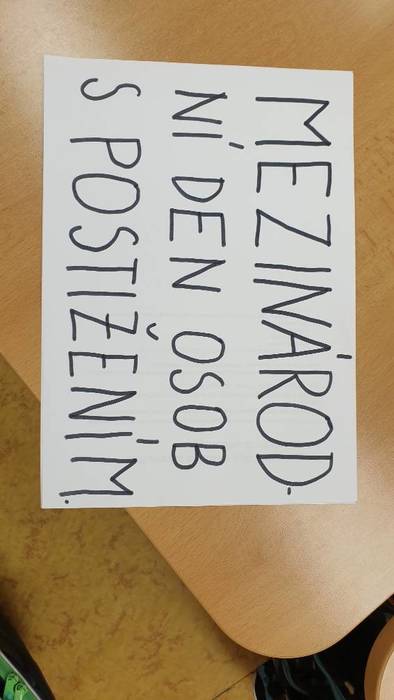 MEZINÁROD-
NÍ DEN OSOB
S POSTIŽENÍM.